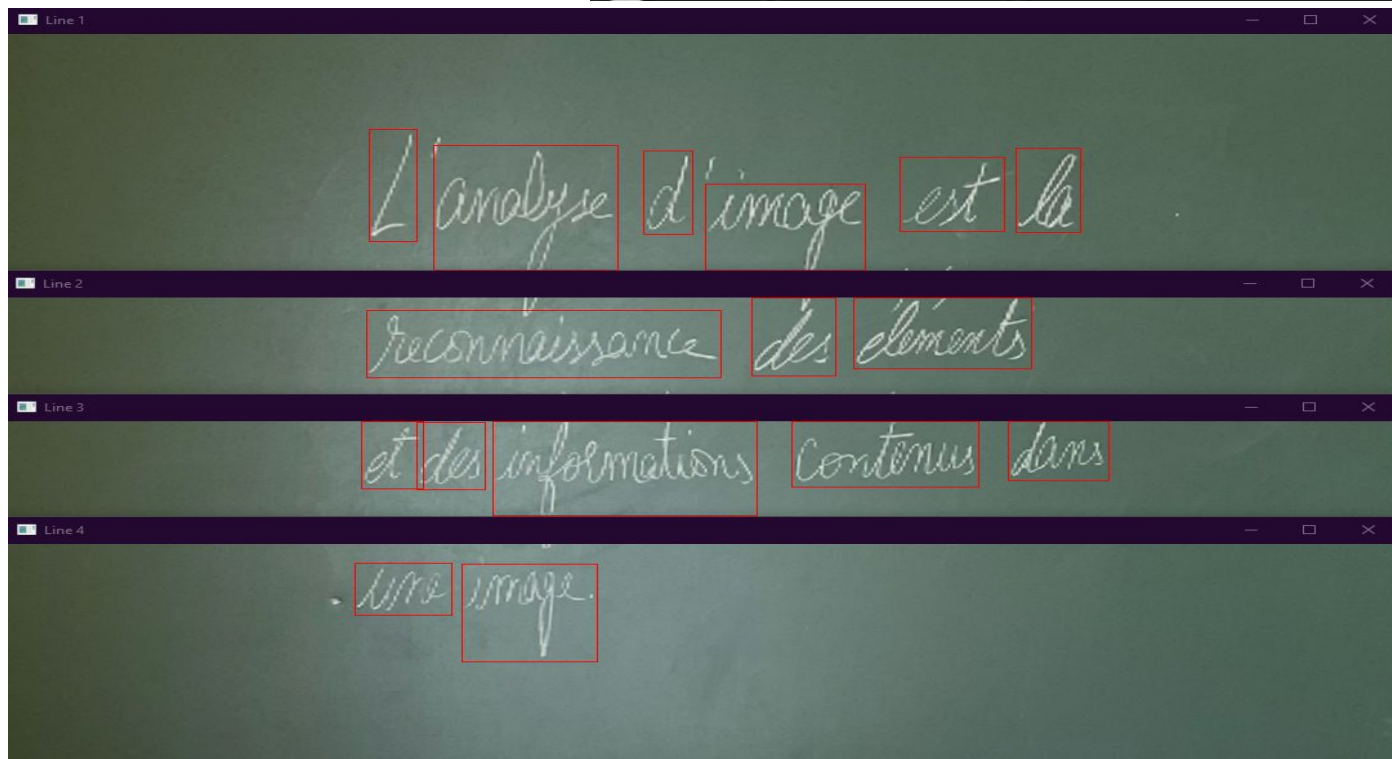 Line 1
L'analyse d'image est la
Line 2
reconnaissance des éléments
Line 3
et des informations contenus dans
Line 4
une image.